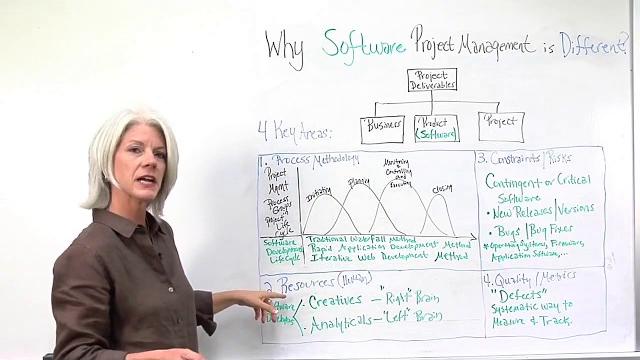 Why Software Project Management is Different?
Project
Deliverables
4 Key Areas:
"Business
"Product
(Software)
"Project
1. Process Methodology
Project
Mgmt
Process
Groups
Project
Life
Cycle
Initiating
Planning
Monitoring
&
Controlling
Executing
Closing
Software
Development
LifeCycle
Traditional Waterfall Method
Rapid Application Development Method
Iterative Web Development Method
2. Resources (Human)
Creatives - "Right" Brain
Analyticals - "Left" Brain
3. Constraints/Risks
Contingent or Critical
Software
• New Releases/Versions
• Bugs/Bug Fixes
*Operating Systems, Firmware,
Application Software,...
4. Quality/Metrics
"Defects"
Systematic way to
Measure & Track.